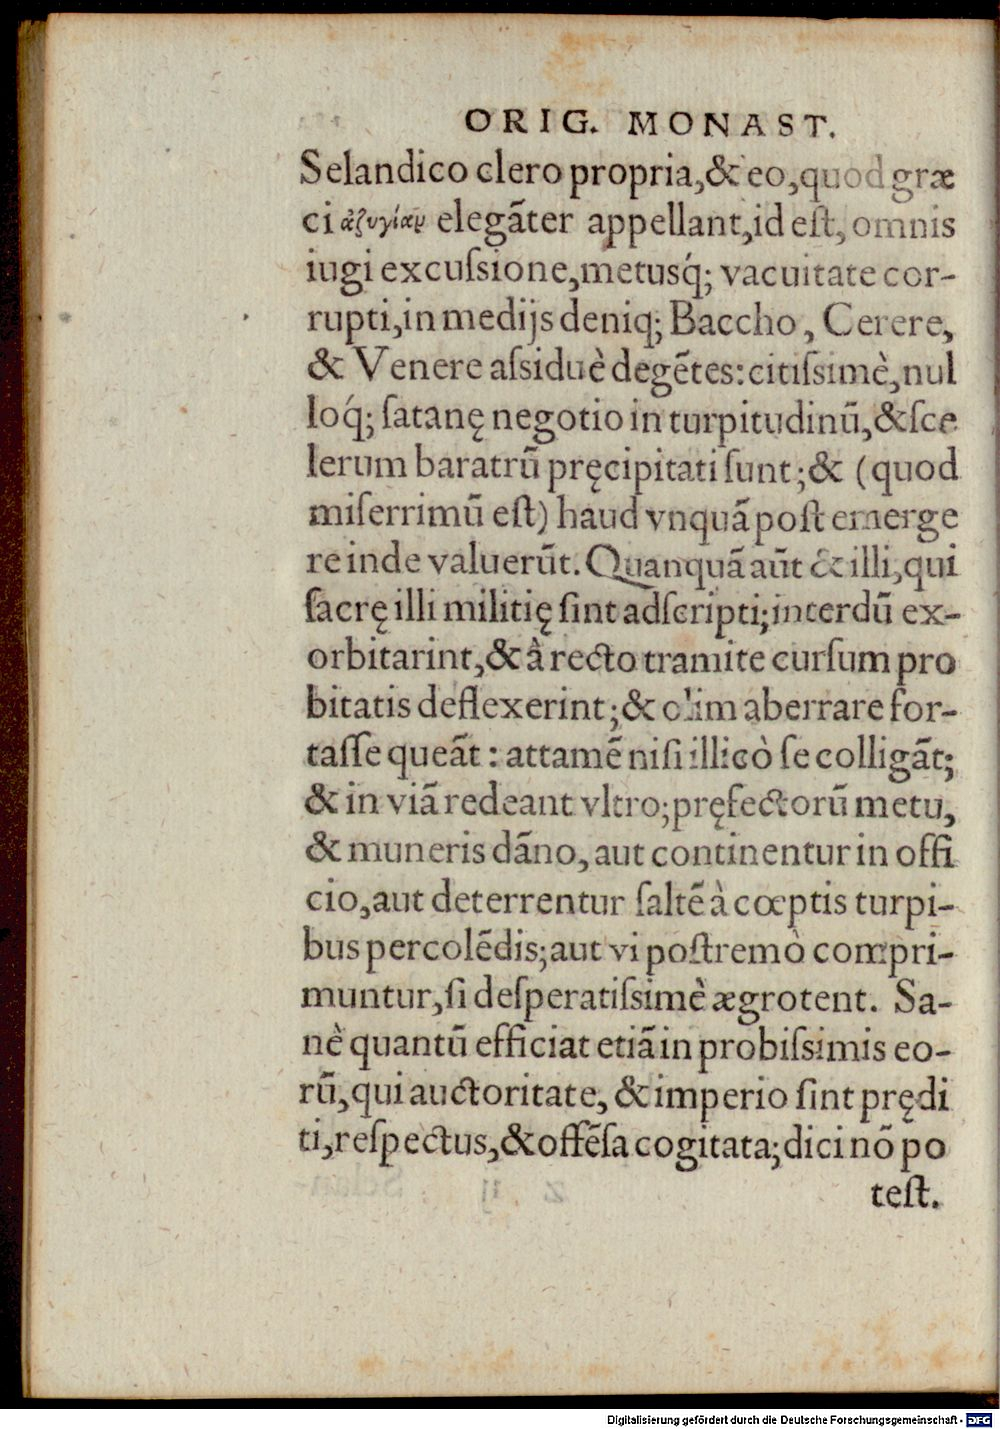 ORIG. MONAST.
Selandico clero propria,& eo,quod græ
ci ἀζυγίαν elegãter appellant,id eſt, omnis
iugi excuſsione,metusq́; vacuitate cor-
rupti,in medijs deniq; Baccho, Cerere,
& Venere aſsiduè degẽtes:citiſsimè,nul
loq́; ſatanę negotio in turpitudinũ,&ſce
lerum baratrũ pręcipitati ſunt;& (quod
miſerrimũ eſt) haud vnquã poſt emerge
re inde valuerũt. Quanquã aũt & illi,qui
ſacrę illi militię ſint adſcripti;interdũ ex-
orbitarint,& à recto tramite curſum pro
bitatis deflexerint;& olim aberrare for-
taſſe queãt: attamẽ niſi illicò ſe colligãt;
& in viã redeant vltro;pręfectorũ metu,
& muneris dãno, aut continentur in offi
cio,aut deterrentur ſaltẽ à cœptis turpi-
bus percolẽdis;aut vi poſtremò compri-
muntur,ſi deſperatiſsimè ægrotent. Sa-
nè quantũ efficiat etiã in probiſsimis eo-
rũ,qui auctoritate, & imperio ſint prędi
ti,reſpectus,& offẽſa cogitata;dici nõ po
teſt.
Digitalisierung gefördert durch die Deutsche Forschungsgemeinschaft - DFG